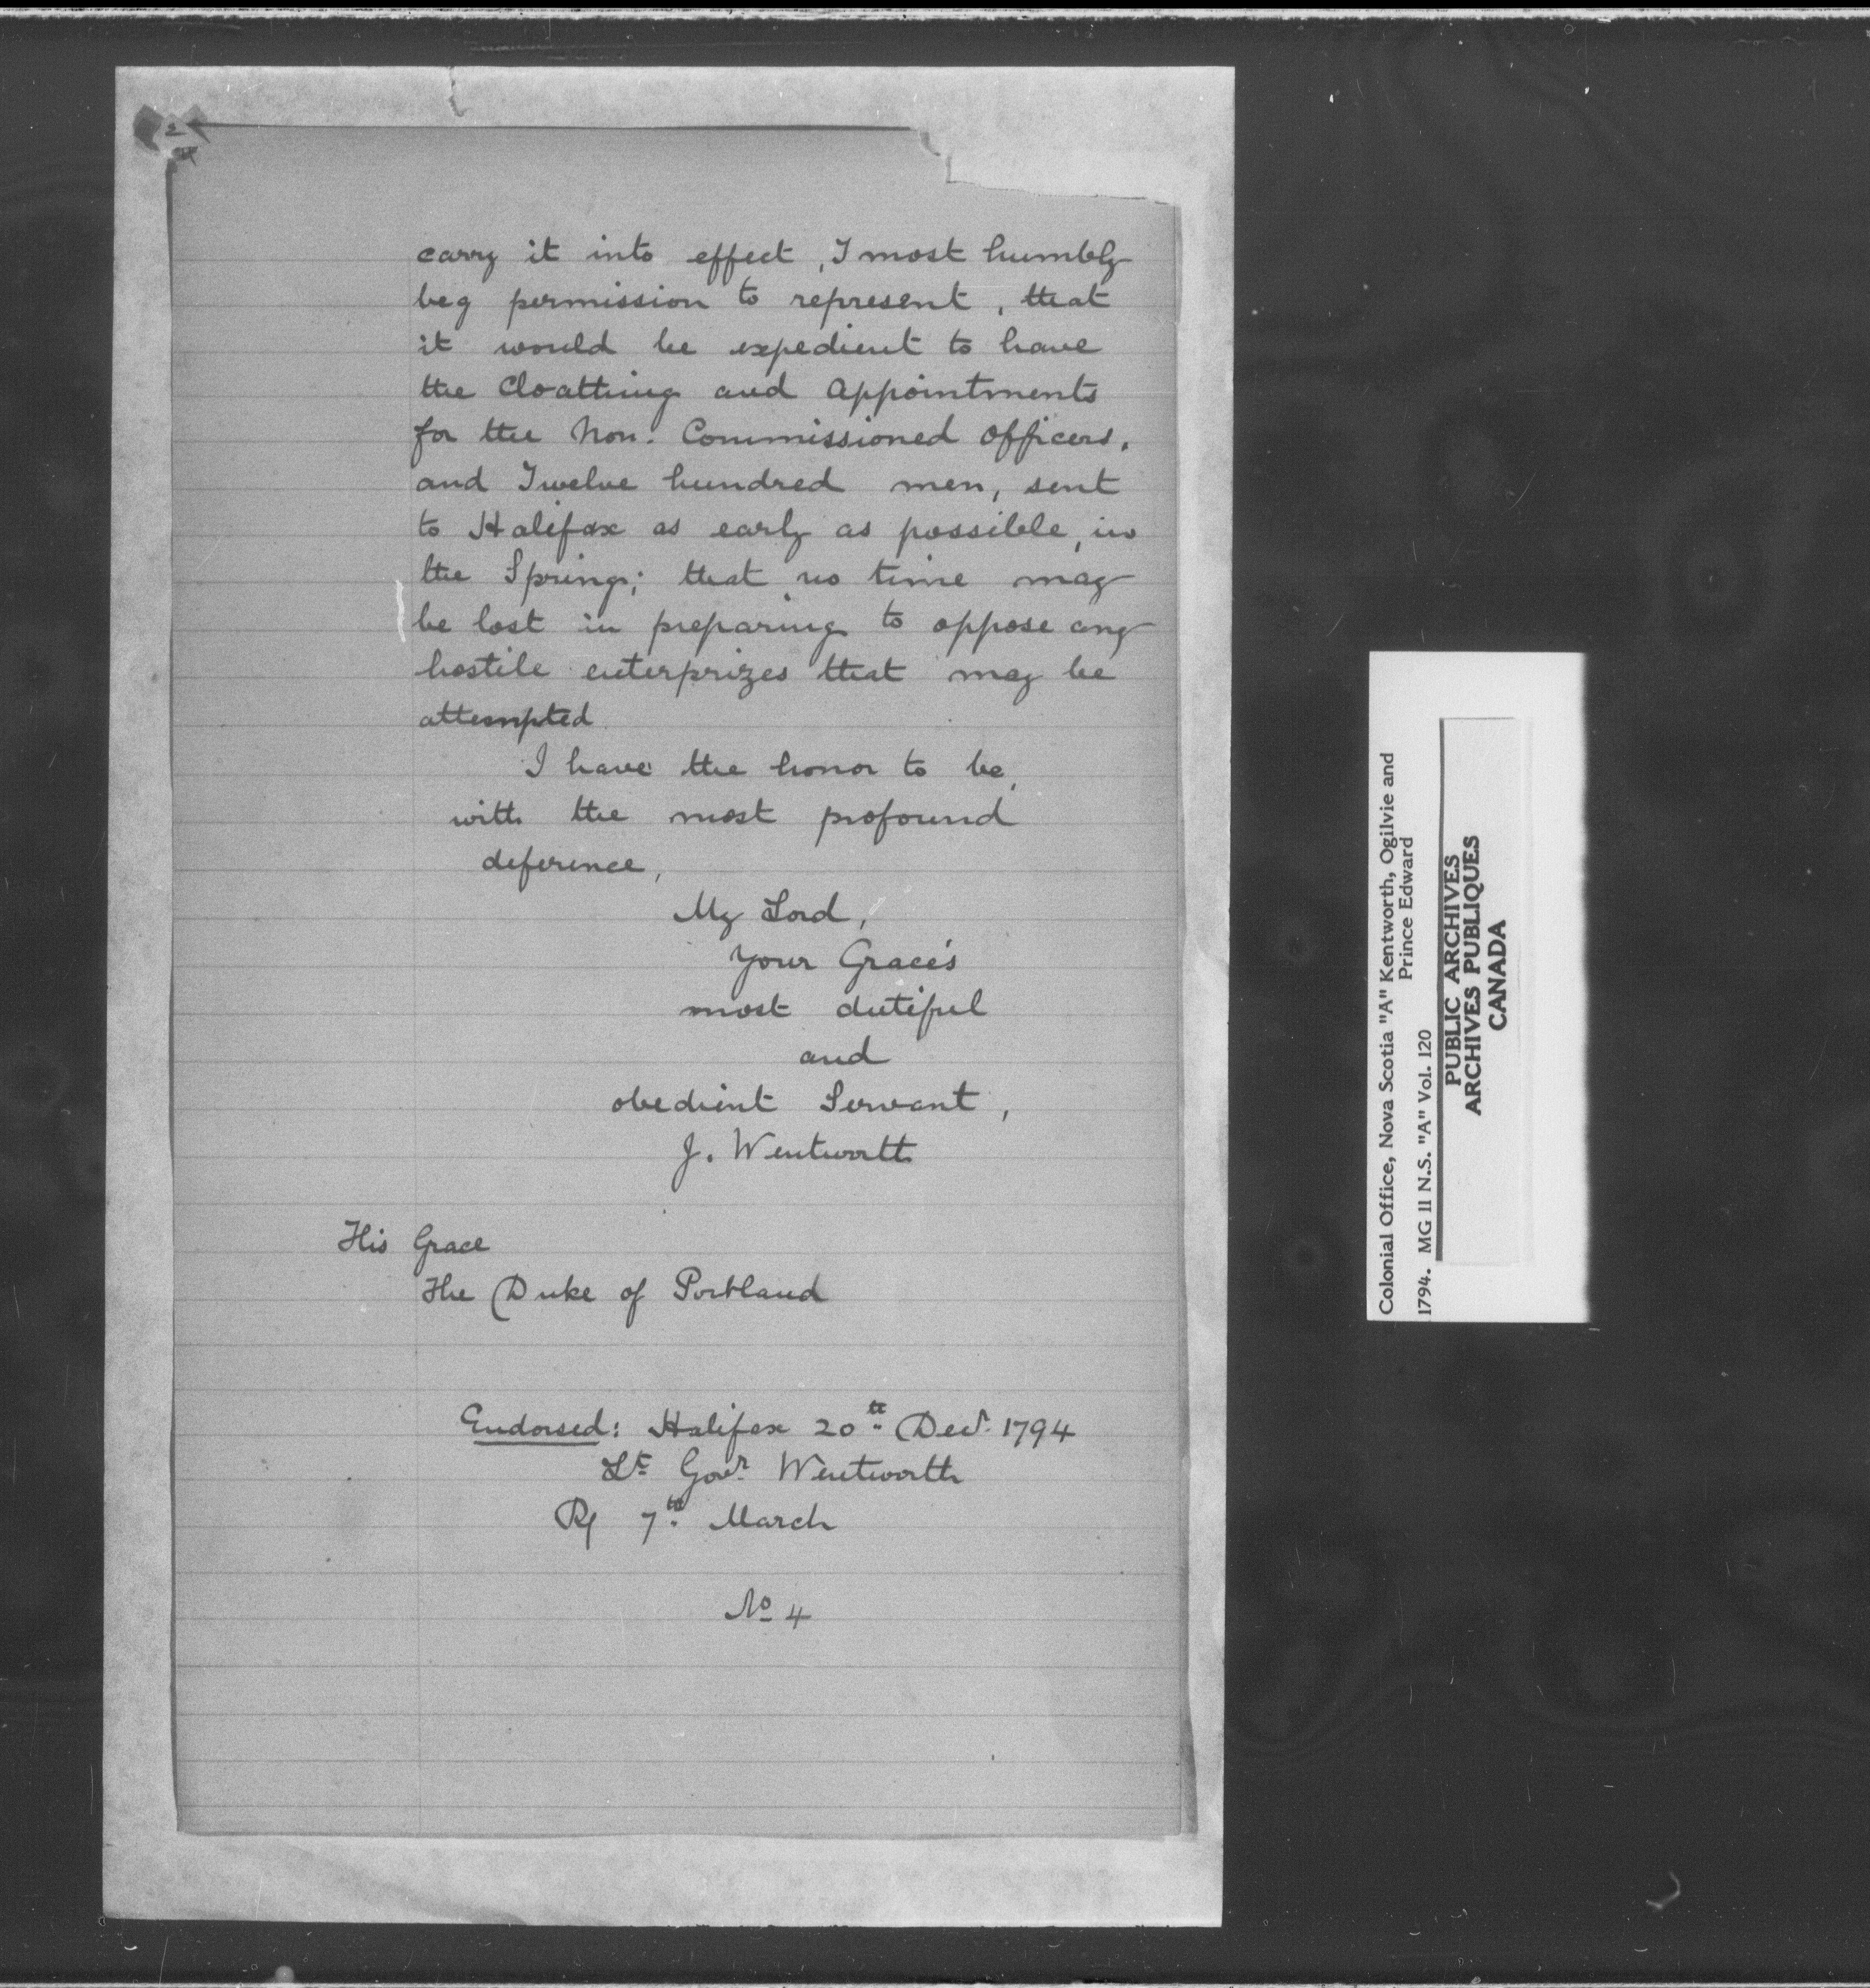 carry it into effect, I most humbly
beg permission to represent, that
it would be expedient to have
the Cloathing and Appointments
for the Non. Commissioned Officers,
and Twelve hundred men, sent
to Halifax as early as possible, in
the Spring; that no time may
be lost in preparing to oppose any
hostile enterprizes that may be
attempted.
I have the honor to be,
with the most profound
deference,
My Lord,
Your Grace's
most dutiful
and
obedient Servant,
J. Wentworth
His Grace
The Duke of Portland
Endorsed: Halifax 20th Decr. 1794
Lt Govr. Wentworth
7th March
No 4
Colonial Office, Nova Scotia "A" Kentworth, Ogilvie and
Prince Edward
1794. MG 11 N.S. "A" Vol. 120
PUBLIC ARCHIVES
ARCHIVES PUBLIQUES
CANADA